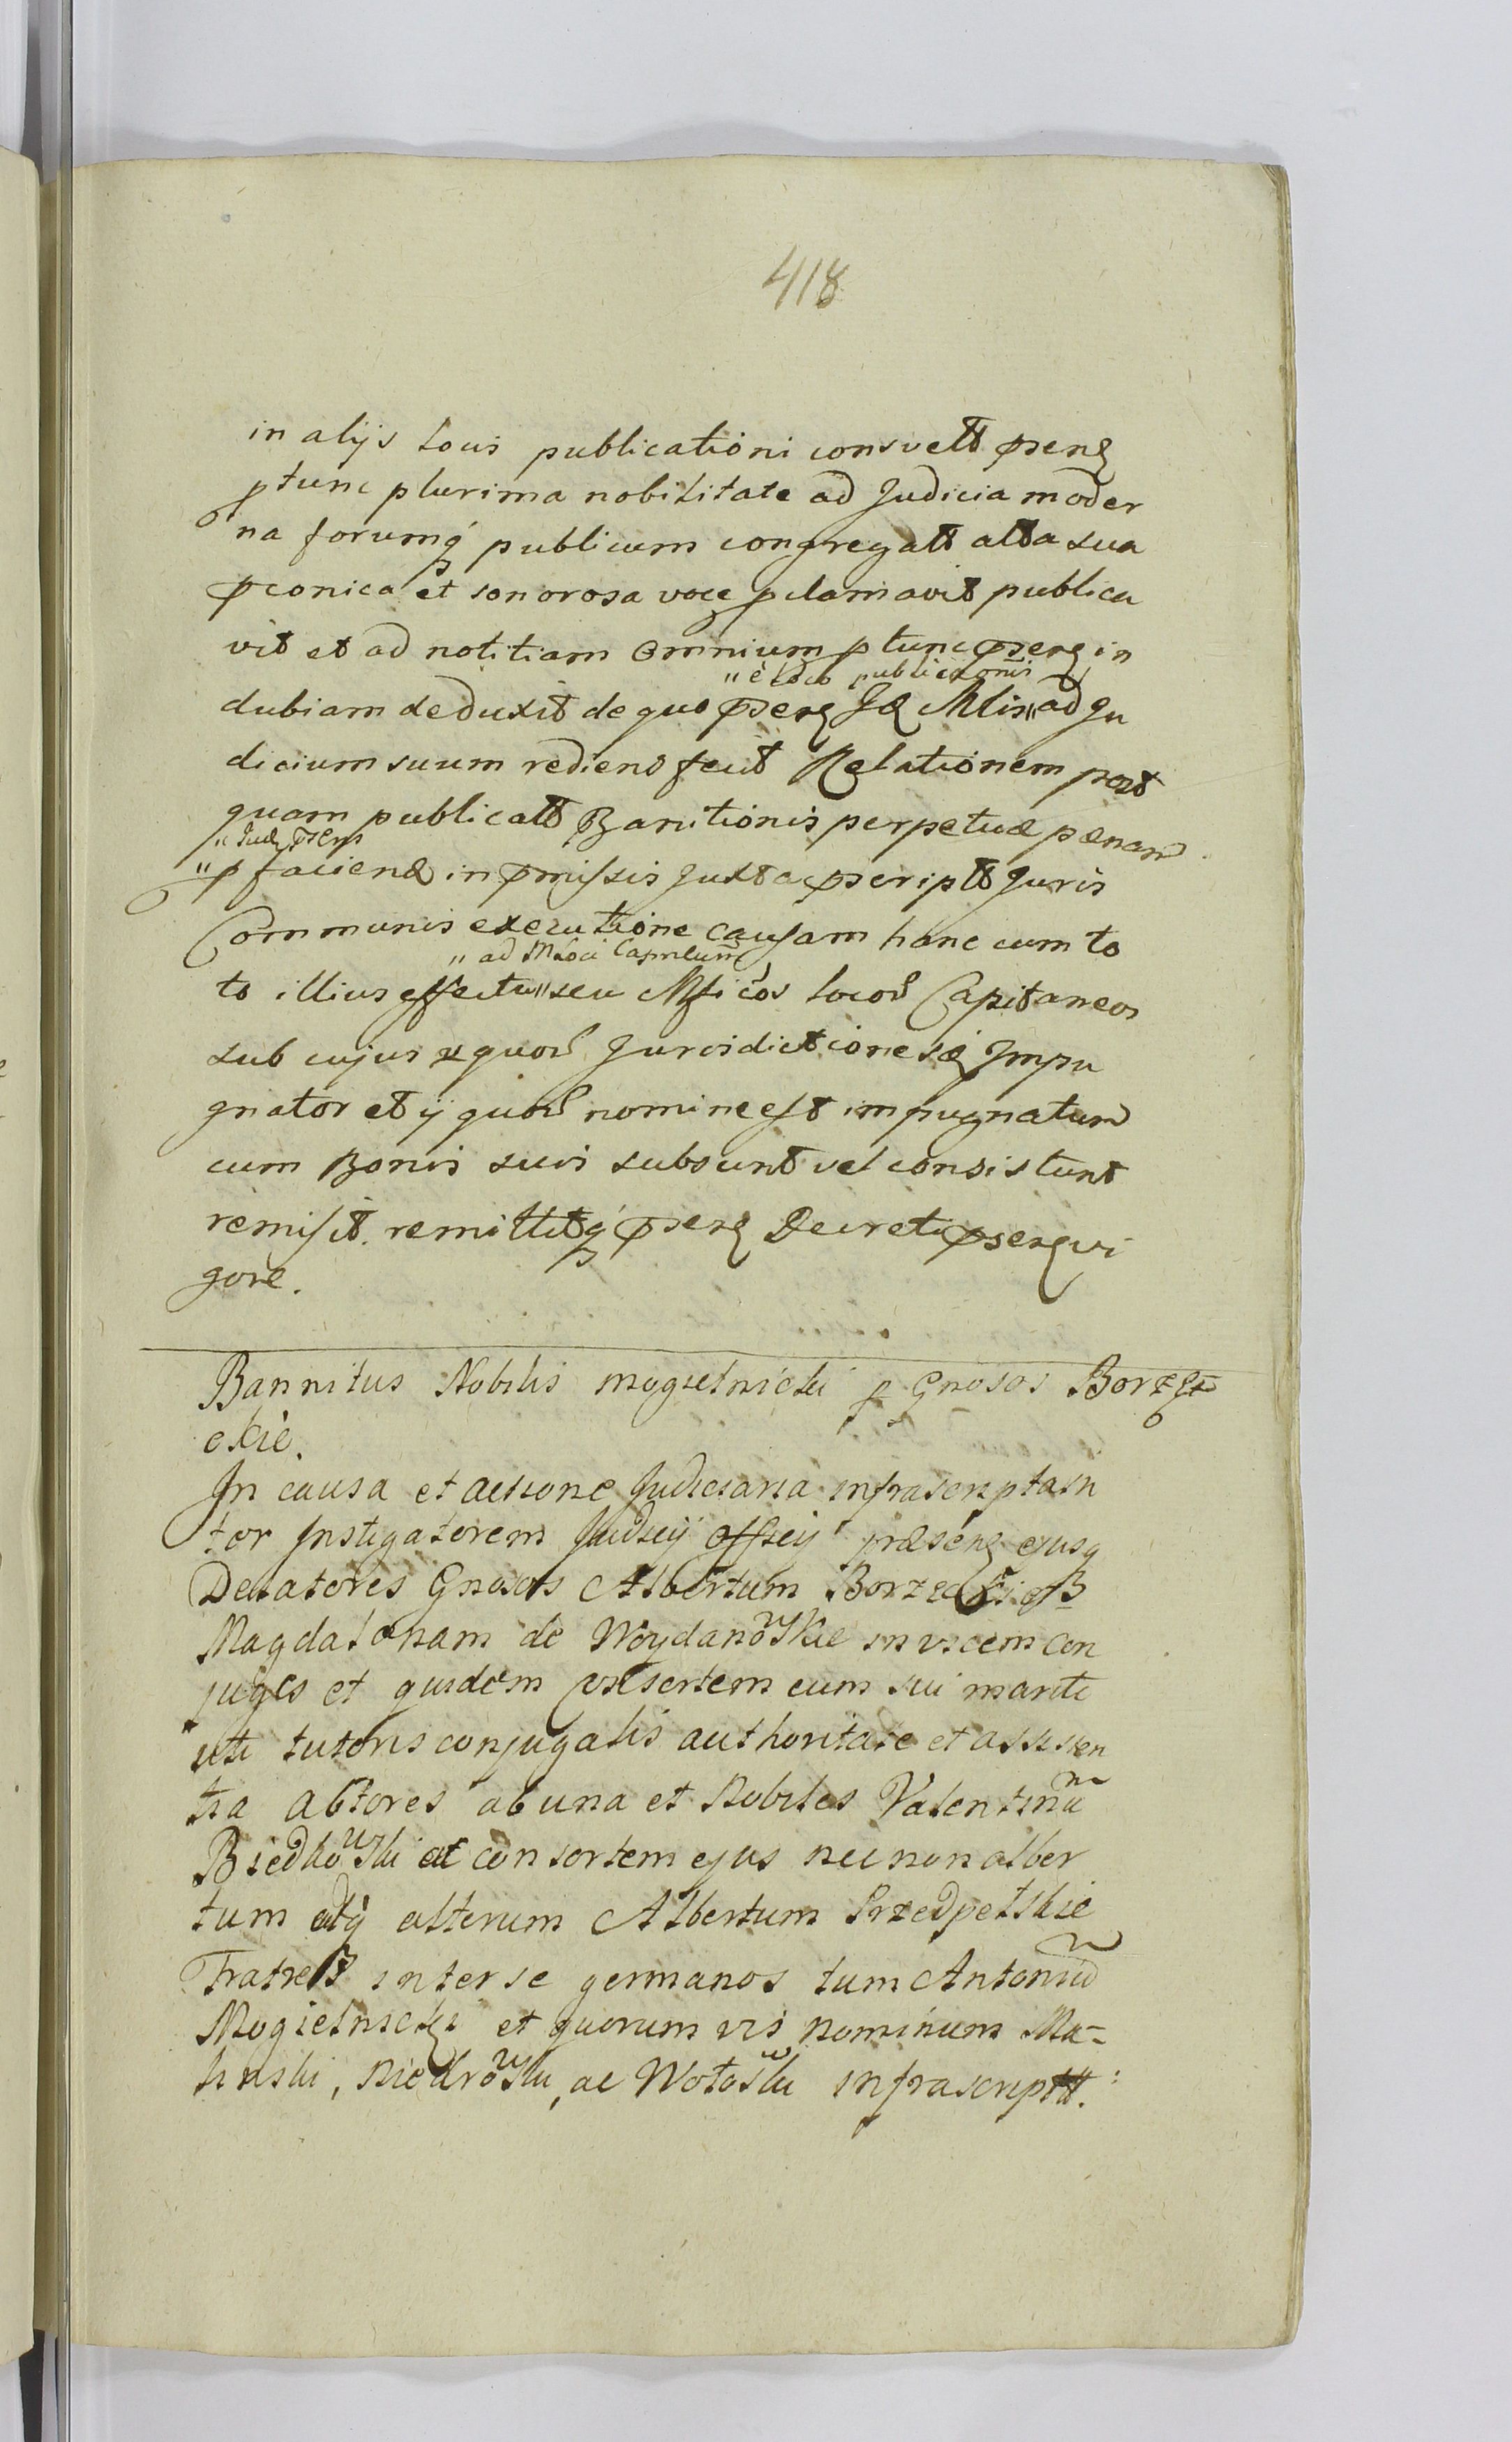 418
in alijs locis publicationi consvett psens
ptunc plurima nobilitate ad Judicia moder
na forumq publicum congregatt alta sua
pconica et sonorosa voce pclamavit publica
vit et ad notitiam omnium ptunc psens in
"è loco publicaonis
dubiam deduxit de quo psens Jd Mlis" ad Ju
dicium suum rediens fecit Relationem post
quam publicatt Banitionis perpetuæ pænam
"Judm psens
"p faciend in pmissis Juxta pscriptt Juris
Communis executione causam hanc cum to
"ad M Loci Capneum
to illius effectu" seu Mficos locor Capitaneos
sub cujus et quor Jurisdictione sæ Impu
gnator et ij quor nomine est impugnatum
cum Bonis suis subsunt vel consistunt
remisit. remittitq psens Decreti psens vi
gore.
Bannitus Nobilis Mogielnicki p Gnosos Borzę
ckie.
In causa et actione Judiciaria infrascripta in
ter Instigatorem Judicij officij præsens ejusq
Delatores Gnosos Albertum Borzecki et
Magdalenam de Woydanowskie invicem con
juges et quidem consertem cum sui mariti
uti tutoris conjugalis authoritate et assisten
tia Actores ab una et Nobiles Valentinum
Biedkowski et consortem ejus necnon alber
tum atq alterum Albertum Przedpelskie
Fratres inter se germanos tum Antonium
Mogielnicki et quorum vis nominum Ma-
linski, Niedrowski, ac Wołowski infrascriptt.: